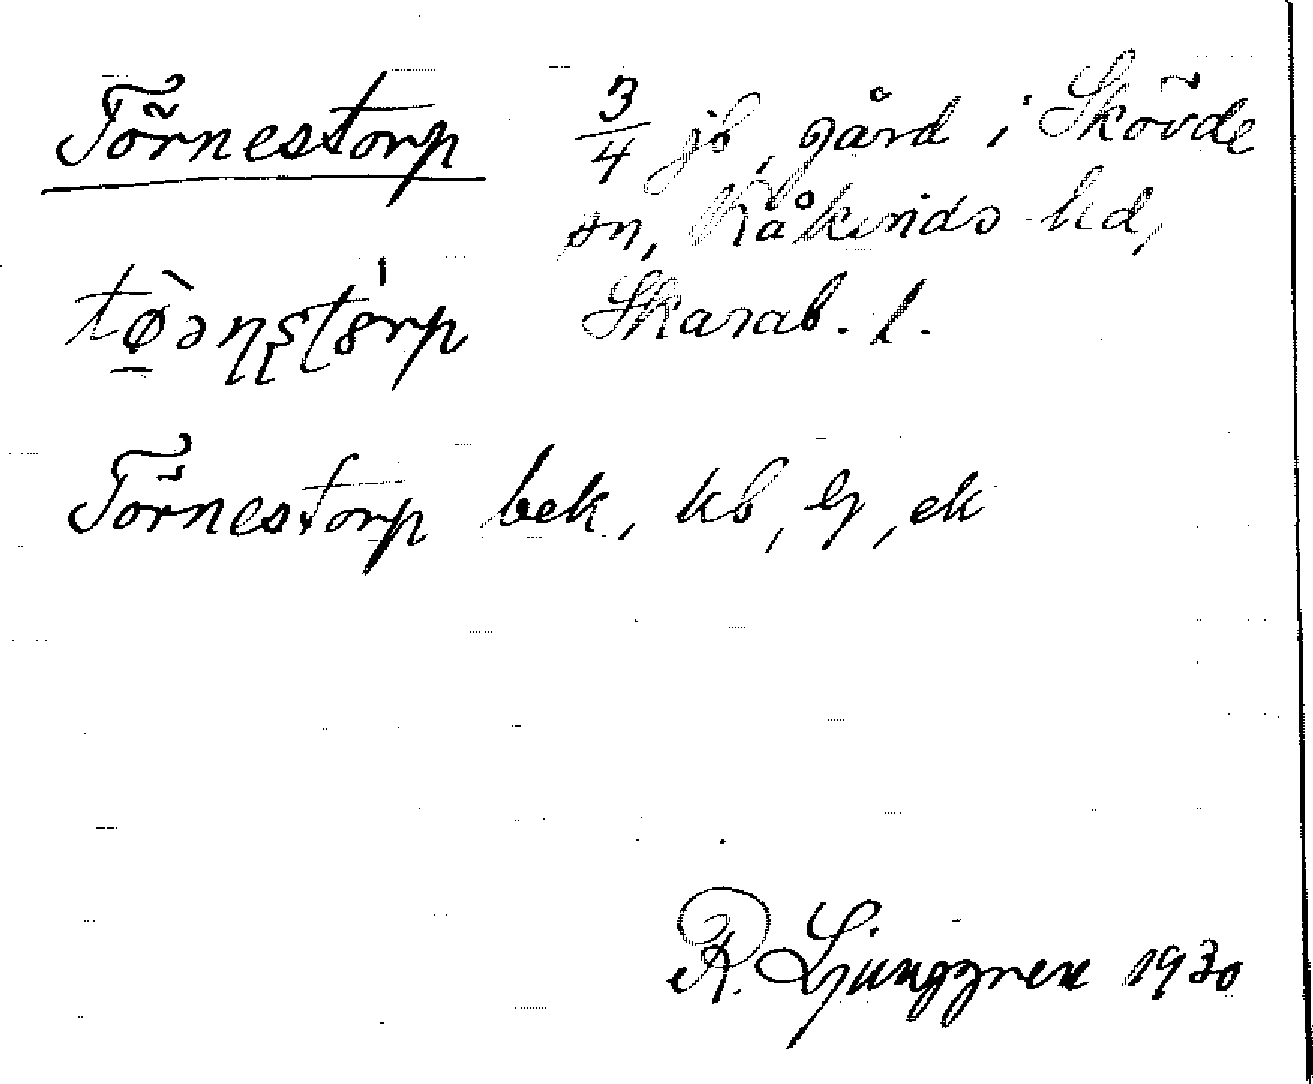 Törnestorp 3/4 jb, gård i Skövde
sn, Kåkinds hd,
Skarab. l.
Törnestorp bek, kb, ek
R. Ljunggren 1930